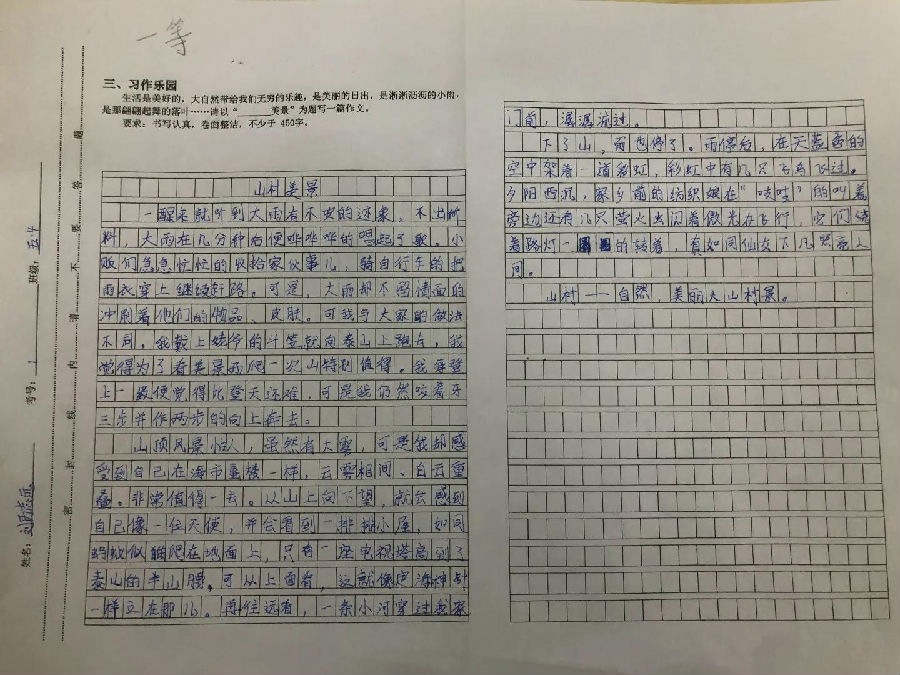 一等
三、习作乐园
生活是美好的，大自然带给我们无穷的乐趣，是美丽的日出，是淅淅沥沥的小雨，
是那翩翩起舞的落叶……请以“______美景”为题写一篇作文。
要求：书写认真，卷面整洁，不少于 450字。
山村美景
一醒来就听到大雨有不安的迹象，不出所
料，大雨在几分钟后便哗哗哗的唱起了歌。小
贩们急急忙忙的收拾家伙事儿，骑自行车的把
雨衣穿上继续赶路。可是，大雨却不留情面的
冲刷着他们的物品、皮肤。可我与大家的做法
不同，我戴上爷爷的斗笠就向泰山上跑去，我
觉得为了看美景而爬一次山特别值得。我每登
上一级便觉得比登天还难，可是我仍然咬着牙
三步并作两步的向上奔去。
山顶风景怡人，虽然有大雾，可是我却感
受到自己在海市蜃楼一样，云雾相间、白云重
叠。非常值得一去。从山上向下望，就会感到
自己像一位天使，并会看到一排排小屋，如同
蚂蚁似的爬在地面上，只有一座电视塔高到了
泰山的半山腰，可从上面看，这就像定海神针
一样立在那儿。蹲住远看，一条小河穿过我家
门前，潺潺流过。
下了山，雨也停了。雨停后，在天蓝色的
空中架着一道彩虹，彩虹中有几只飞鸟飞过。
夕阳西沉，家乡前的纺织娘在“吱吱”的叫着
旁边还有几只萤火虫闪着微光在飞行，它们绕
着路灯一的转着，真如同仙女下凡照亮人
间。
山村——自然，美丽大山村景。
姓名：
考号：1
班级：
密
封
线
内
请
不
要
答
题